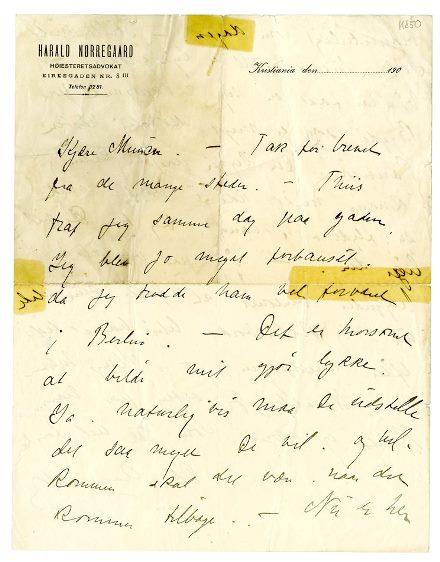 K 850
HARALD NØRREGAARD
HØIESTERETSADVOKAT
KIRKEGADEN NR. 8 III
Telefon
Kristiania den 190
Kjære Munch. — Tak for brevet
fra de mange steder. — Thiis
traf jeg samme dag paa gaden.
Jeg blev jo meget forbauset.
da jeg trodde ham vel forvaret
i Berlin. — Det er morsomt
at billedet mit gjør lykke.
Ja naturligvis maa De udstille
det saa meget De vil. og vel-
kommen skal det være naar det
kommer tilbage. — Nu er her